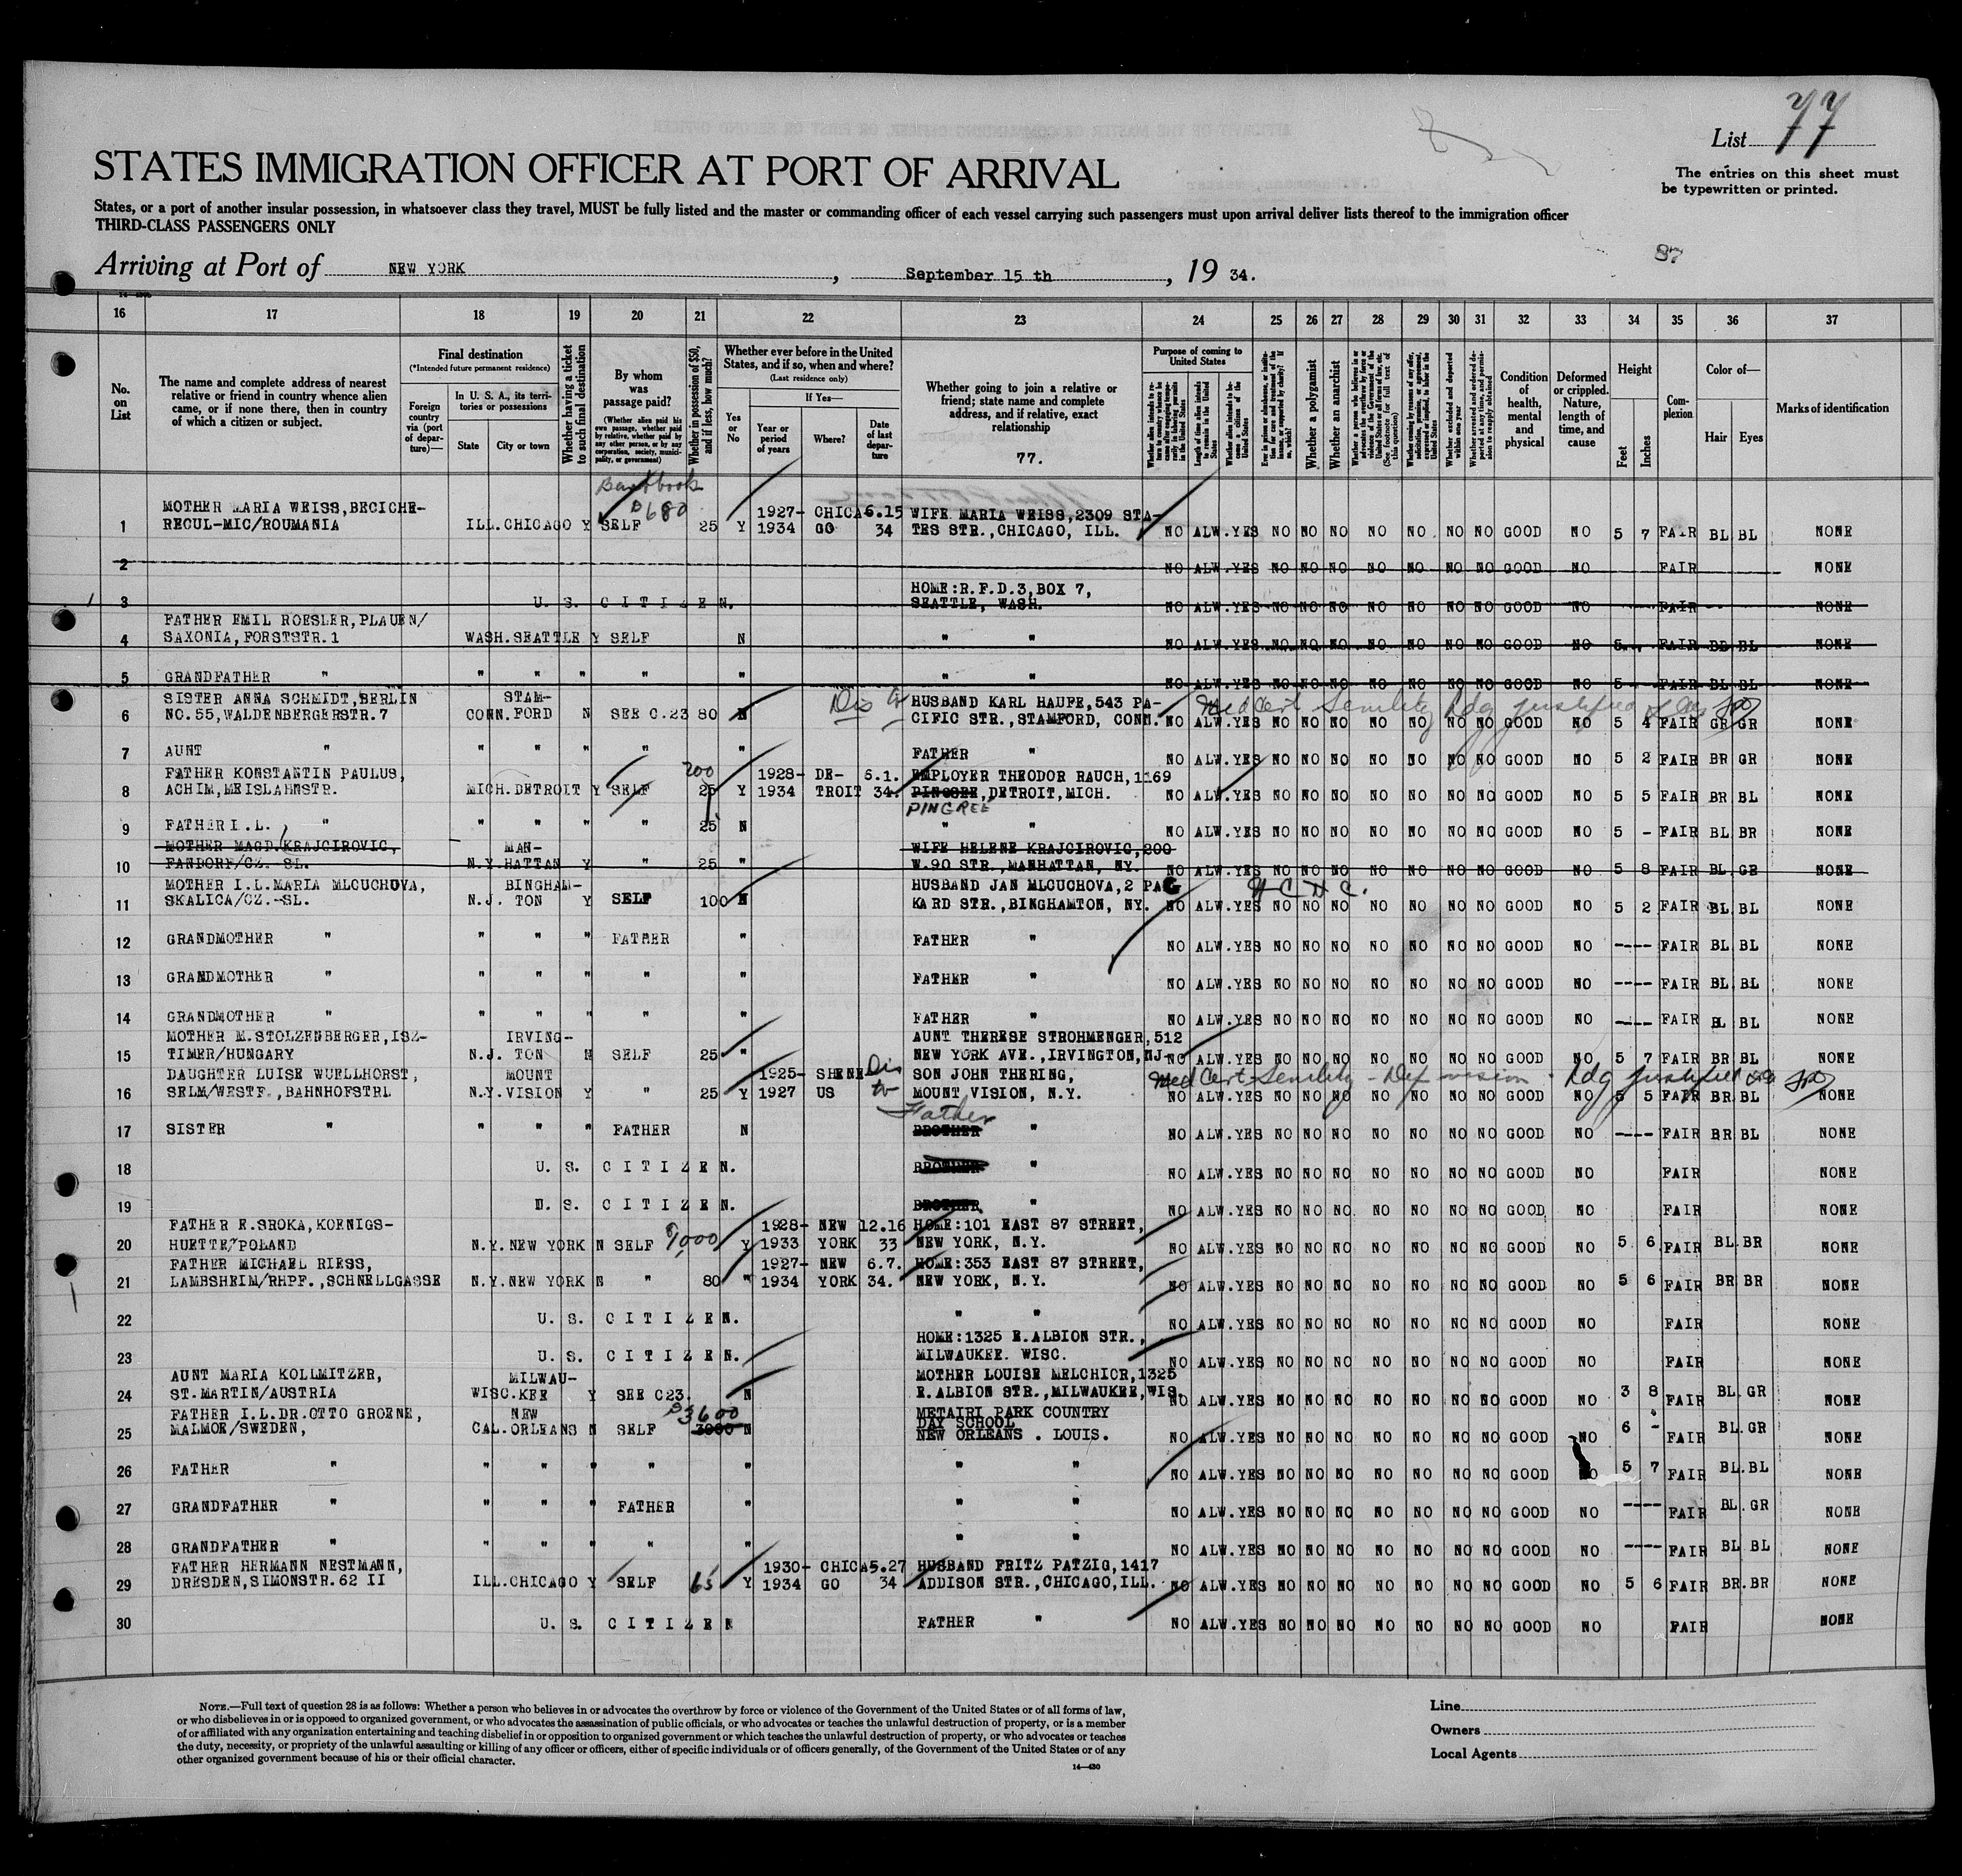 77
List
The entries on this sheet must
be typewritten or printed.
STATES IMMIGRATION OFFICER AT PORT OF ARRIVAL
States, or a port of another insular possession, in whatsoever class they travel, MUST be fully listed and the master or commanding officer of each vessel carrying such passengers must upon arrival deliver lists thereof to the immigration officer
THIRD-CLASS PASSENGERS ONLY
87
Arriving at Port of NEW YORK , September 15 th , 19 34.
16 17 18 19 20 21 22 23 24 25 26 27 28 29 30 31 32 33 34 35 36 37
No. on List
The name and complete address of nearest
relative or friend in country whence alien
came, or if none there, then in country
of which a citizen or subject.
Final destination
(*Intended future permanent residence)
Foreign country via (port of departure)—
In U. S. A., its territories or possessions
State
City or town
Whether having a ticket to such final destination
By whom was passage paid?
(Whether alien paid his own passage, whether paid by relative, whether paid by any other person, or by any corporation, society, municipality, or government)
Whether in possession of $50, and if less, how much?
Whether ever before in the United
States, and if so, when and where?
(Last residence only)
Yes or No
If Yes—
Year or period of years
Where?
Date of last departure
Whether going to join a relative or
friend; state name and complete
address, and if relative, exact
relationship
77.
Purpose of coming to
United States
Whether a polygamist
Whether an anarchist
Condition of health, mental and physical
Deformed or crippled. Nature, length of time, and cause
Height
Feet
Inches
Complexion
Color of—
Hair
Eyes
Marks of identification
Bankbook
$680
MOTHER MARIA WEISS, BECICHE-
1 RECUL-MIC/ROUMANIA ILL. CHICAGO Y SELF 25 Y 1927-1934 CHICAGO 6.15 34 WIFE MARIA WEISS, 2309 STATES STR., CHICAGO, ILL. NO ALW. YES NO NO NO NO NO NO NO GOOD NO 5 7 FAIR BL BL NONE
2 NO ALW. YES NO NO NO NO NO NO NO GOOD NO FAIR NONE
3 U. S. CITIZEN. HOME: R.F.D.3, BOX 7, SEATTLE, WASH. NO ALW. YES NO NO NO NO NO NO NO GOOD NO FAIR NONE
FATHER EMIL ROESLER, PLAUEN/
4 SAXONIA, FORSTSTR. 1 WASH. SEATTLE Y SELF N " " NO ALW. YES NO NO NO NO NO NO NO GOOD NO 5 FAIR BL NONE
5 GRANDFATHER " " " " " " " " NO ALW. YES NO NO NO NO NO NO NO GOOD NO 5 FAIR BL BL NONE
SISTER ANNA SCHMIDT, BERLIN
6 NO.55, WALDENBERGERSTR. 7 CONN. STAMFORD N SEE C.23 80 N HUSBAND KARL HAUFE, 543 PACIFIC STR., STAMFORD, CONN. NO ALW. YES NO NO NO NO NO NO NO GOOD NO 5 4 FAIR GR GR NONE
Med Cert Senility Ldg justified
7 AUNT " " " " " " FATHER " NO ALW. YES NO NO NO NO NO NO NO GOOD NO 5 2 FAIR BR GR NONE
FATHER KONSTANTIN PAULUS,
200
8 ACHIM, MEISLAHNSTR. MICH. DETROIT Y SELF 25 Y 1928-1934 DETROIT 5.1. 34. EMPLOYER THEODOR RAUCH, 1169 PINGREE, DETROIT, MICH. NO ALW. YES NO NO NO NO NO NO NO GOOD NO 5 5 FAIR BR BL NONE
PINGREE
9 FATHER I.L. " " " " " 25 N " " NO ALW. YES NO NO NO NO NO NO NO GOOD NO 5 - FAIR BL BR NONE
MOTHER MAGD. KRAJCIROVIC,
10 PANDORF/CZ.-SL. N.Y. MANHATTAN Y " 25 " WIFE HELENE KRAJCIROVIC, 200 W. 90 STR., MANHATTAN, NY. NO ALW. YES NO NO NO NO NO NO NO GOOD NO 5 8 FAIR BL GR NONE
MOTHER I.L. MARIA MLCUCHOVA,
11 SKALICA/CZ.-SL. N.J. BINGHAMTON Y SELF 100 N HUSBAND JAN MLCUCHOVA, 2 PACKARD STR., BINGHAMTON, NY. NO ALW. YES NO NO NO NO NO NO NO GOOD NO 5 2 FAIR BL BL NONE
12 GRANDMOTHER " " " " FATHER " FATHER " NO ALW. YES NO NO NO NO NO NO NO GOOD NO ---- FAIR BL BL NONE
13 GRANDMOTHER " " " " " " FATHER " NO ALW. YES NO NO NO NO NO NO NO GOOD NO ---- FAIR BL BL NONE
14 GRANDMOTHER " " " " " " FATHER " NO ALW. YES NO NO NO NO NO NO NO GOOD NO ---- FAIR BL BL NONE
MOTHER M. STOLZENBERGER, ISZ-
15 TIMER/HUNGARY N.J. IRVINGTON N SELF 25 " AUNT THERESE STROHMENGER, 512 NEW YORK AVE., IRVINGTON, NJ. NO ALW. YES NO NO NO NO NO NO NO GOOD NO 5 7 FAIR BR BL NONE
DAUGHTER LUISE WUELLHORST,
16 SELM/WESTF., BAHNHOFSTRL N.Y. MOUNT VISION Y " 25 Y 1925-1927 SHENEUS SON JOHN THERING, MOUNT VISION, N.Y. NO ALW. YES NO NO NO NO NO NO NO GOOD NO 5 5 FAIR BR BL NONE
Med Cert Senility - Def vision - Ldg justified
Father
17 SISTER " " " " FATHER N BROTHER " NO ALW. YES NO NO NO NO NO NO NO GOOD NO ---- FAIR BR BL NONE
18 U. S. CITIZEN. BROTHER " NO ALW. YES NO NO NO NO NO NO NO GOOD NO FAIR NONE
19 U. S. CITIZEN. BROTHER " NO ALW. YES NO NO NO NO NO NO NO GOOD NO FAIR NONE
FATHER E. SROKA, KOENIGS-
20 HUETTE/POLAND N.Y. NEW YORK N SELF Y 1928-1933 NEW YORK 12.16 33 HOME: 101 EAST 87 STREET, NEW YORK, N.Y. NO ALW. YES NO NO NO NO NO NO NO GOOD NO 5 6 FAIR BL BR NONE
FATHER MICHAEL RIESS,
21 LAMBSHEIM/RHPF., SCHNELLGASSE N.Y. NEW YORK N " 80 " 1927-1934 NEW YORK 6.7. 34. HOME: 353 EAST 87 STREET, NEW YORK, N.Y. NO ALW. YES NO NO NO NO NO NO NO GOOD NO 5 6 FAIR BR BR NONE
22 U. S. CITIZEN. " " NO ALW. YES NO NO NO NO NO NO NO GOOD NO FAIR NONE
23 U. S. CITIZEN. HOME: 1325 E. ALBION STR., MILWAUKEE. WISC. NO ALW. YES NO NO NO NO NO NO NO GOOD NO FAIR NONE
AUNT MARIA KOLLMITZER,
24 ST. MARTIN/AUSTRIA WISC. MILWAUKEE Y SEE C23. N MOTHER LOUISE MELCHIOR, 1325 E. ALBION STR., MILWAUKEE, WIS. NO ALW. YES NO NO NO NO NO NO NO GOOD NO 3 8 FAIR BL. GR NONE
FATHER I.L. DR. OTTO GROENE,
$3600
25 MALMOE/SWEDEN, CAL. NEW ORLEANS N SELF 3000 N METAIRI PARK COUNTRY DAY SCHOOL NEW ORLEANS . LOUIS. NO ALW. YES NO NO NO NO NO NO NO GOOD NO 6 - FAIR BL. GR NONE
26 FATHER " " " " " " " " NO ALW. YES NO NO NO NO NO NO NO GOOD NO 5 7 FAIR BL. BL NONE
27 GRANDFATHER " " " " FATHER " " " NO ALW. YES NO NO NO NO NO NO NO GOOD NO ---- FAIR BL. GR NONE
28 GRANDFATHER " " " " " " " " NO ALW. YES NO NO NO NO NO NO NO GOOD NO ---- FAIR BL BL NONE
FATHER HERMANN NESTMANN,
29 DRESDEN, SIMONSTR. 62 II ILL. CHICAGO Y SELF 65 Y 1930-1934 CHICAGO 5.27 34 HUSBAND FRITZ PATZIG, 1417 ADDISON STR., CHICAGO, ILL. NO ALW. YES NO NO NO NO NO NO NO GOOD NO 5 6 FAIR BR. BR NONE
30 U. S. CITIZEN FATHER " NO ALW. YES NO NO NO NO NO NO NO GOOD NO FAIR NONE
NOTE.—Full text of question 28 is as follows: Whether a person who believes in or advocates the overthrow by force or violence of the Government of the United States or of all forms of law,
or who disbelieves in or is opposed to organized government, or who advocates the assassination of public officials, or who advocates or teaches the unlawful destruction of property, or is a member
of or affiliated with any organization entertaining and teaching disbelief in or opposition to organized government or which teaches the unlawful destruction of property, or who advocates or teaches
the duty, necessity, or propriety of the unlawful assaulting or killing of any officer or officers, either of specific individuals or of officers generally, of the Government of the United States or of any
other organized government because of his or their official character.
14—430
Line
Owners
Local Agents